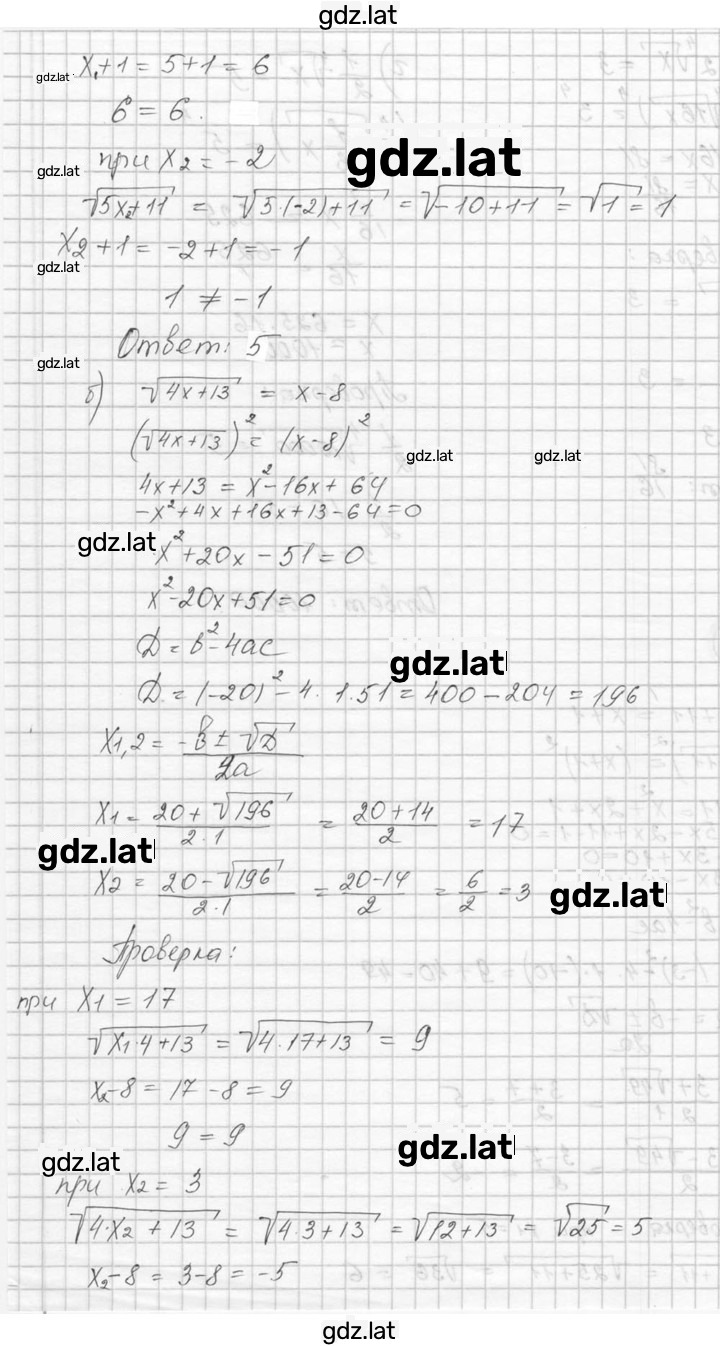 gdz.lat
x₁+1 = 5+1 = 6
gdz.lat
6 = 6.
gdz.lat
при x₂ = -2
gdz.lat
√(5x₂+11) = √(5·(-2)+11) = √(-10+11) = √1 = 1
x₂+1 = -2+1 = -1
gdz.lat
1 ≠ -1
Ответ: 5
gdz.lat
б) √(4x+13) = x-8
(√(4x+13))² = (x-8)²
gdz.lat gdz.lat
4x+13 = x²-16x+64
-x²+4x+16x+13-64=0
gdz.lat
-x²+20x-51=0
x²-20x+51=0
D = b²-4ac
gdz.lat
D = (-20)²-4·1·51 = 400-204 = 196
x₁,₂ = (-b±√D)/2a
x₁ = (20+√196)/(2·1) = (20+14)/2 = 17
gdz.lat
x₂ = (20-√196)/(2·1) = (20-14)/2 = 6/2 = 3
gdz.lat
Проверка:
при x₁ = 17
√(x₁·4+13) = √(4·17+13) = 9
x₂-8 = 17-8 = 9
9 = 9
gdz.lat
gdz.lat
при x₂ = 3
√(4·x₂+13) = √(4·3+13) = √(12+13) = √25 = 5
x₂-8 = 3-8 = -5
gdz.lat